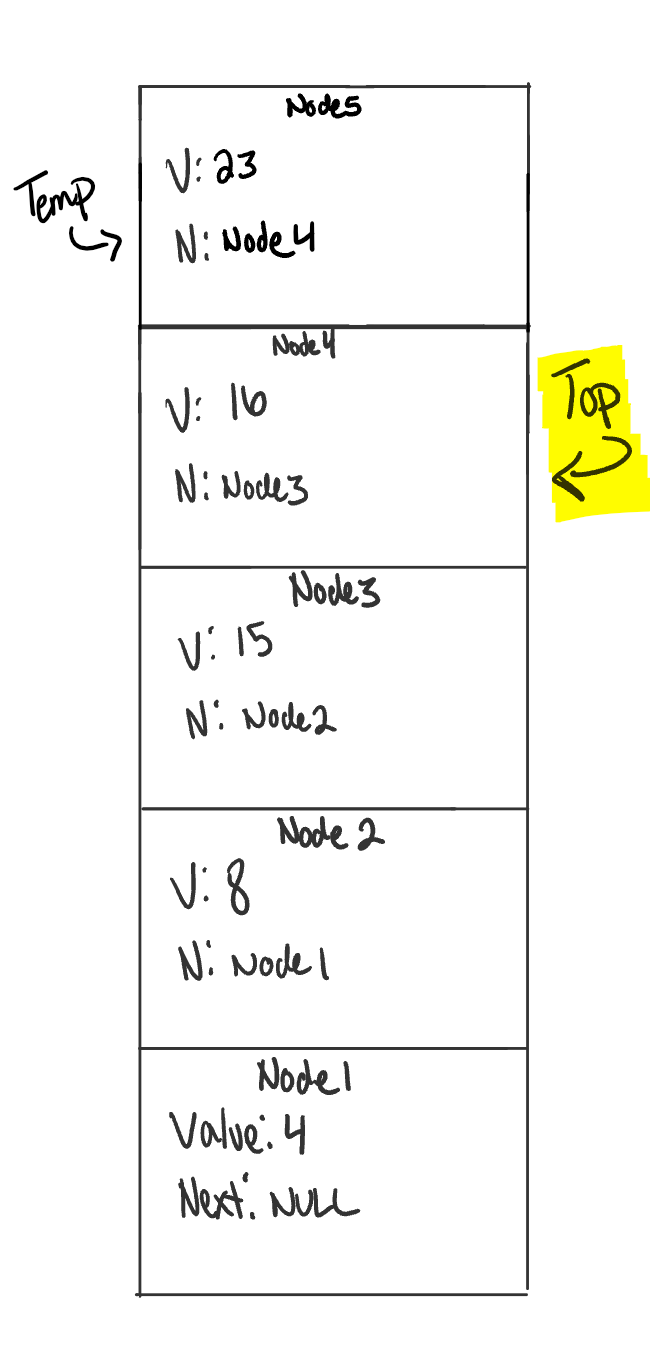 Node5
V: 23
Temp
N: Node4
Node4
V: 16
Top
N: Node3
Node3
V: 15
N: Node2
Node 2
V: 8
N: Node1
Node1
Value: 4
Next: NULL